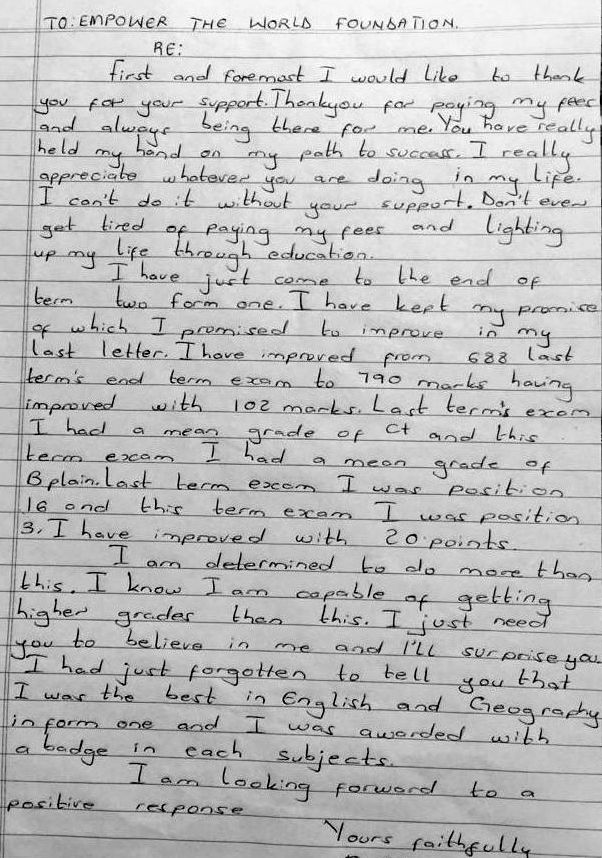 TO: EMPOWER THE WORLD FOUNDATION.
RE:
first and foremost I would like to thank
you for your support. Thankyou for paying my fees
and always being there for me. You have really
held my hand on my path to success. I really
appreciate whatever you are doing in my life.
I can't do it without your support. Don't ever
get tired of paying my fees and lighting
up my life through education.
I have just come to the end of
term two form one. I have kept my promise
of which I promised to improve in my
last letter. I have improved from 688 last
term's end term exam to 790 marks having
improved with 102 marks. Last term's exam
I had a mean grade of C+ and this
term exam I had a mean grade of
B plain. last term exam I was position
16 and this term exam I was position
3. I have improved with 20 points.
I am determined to do more than
this. I know I am capable of getting
higher grades than this. I just need
you to believe in me and I'll surprise you
I had just forgotten to tell you that
I was the best in English and Geography
in form one and I was awarded with
a badge in each subjects.
I am looking forward to a
positive response
Yours faithfully